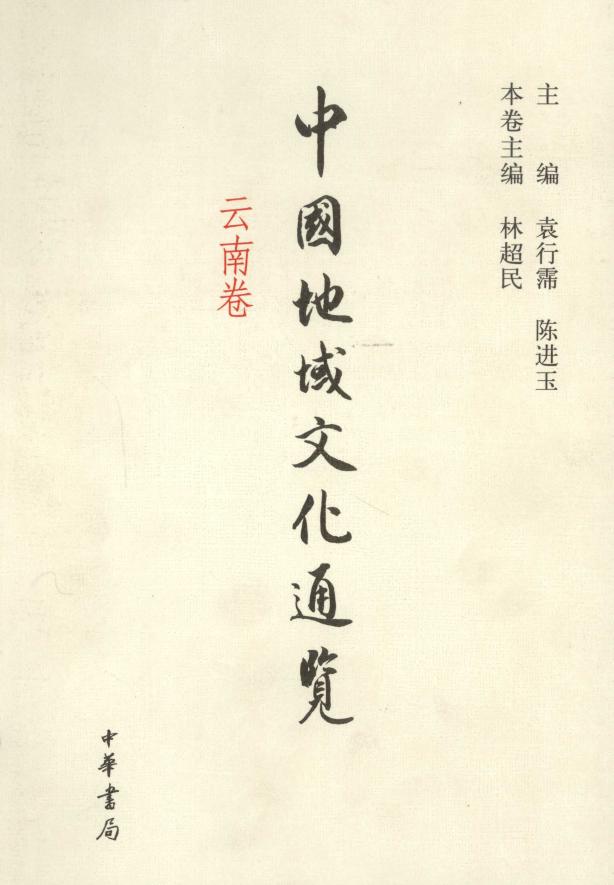 主 编 袁行霈 陈进玉
本卷主编 林超民
中國地域文化通覧
云南卷
中華書局